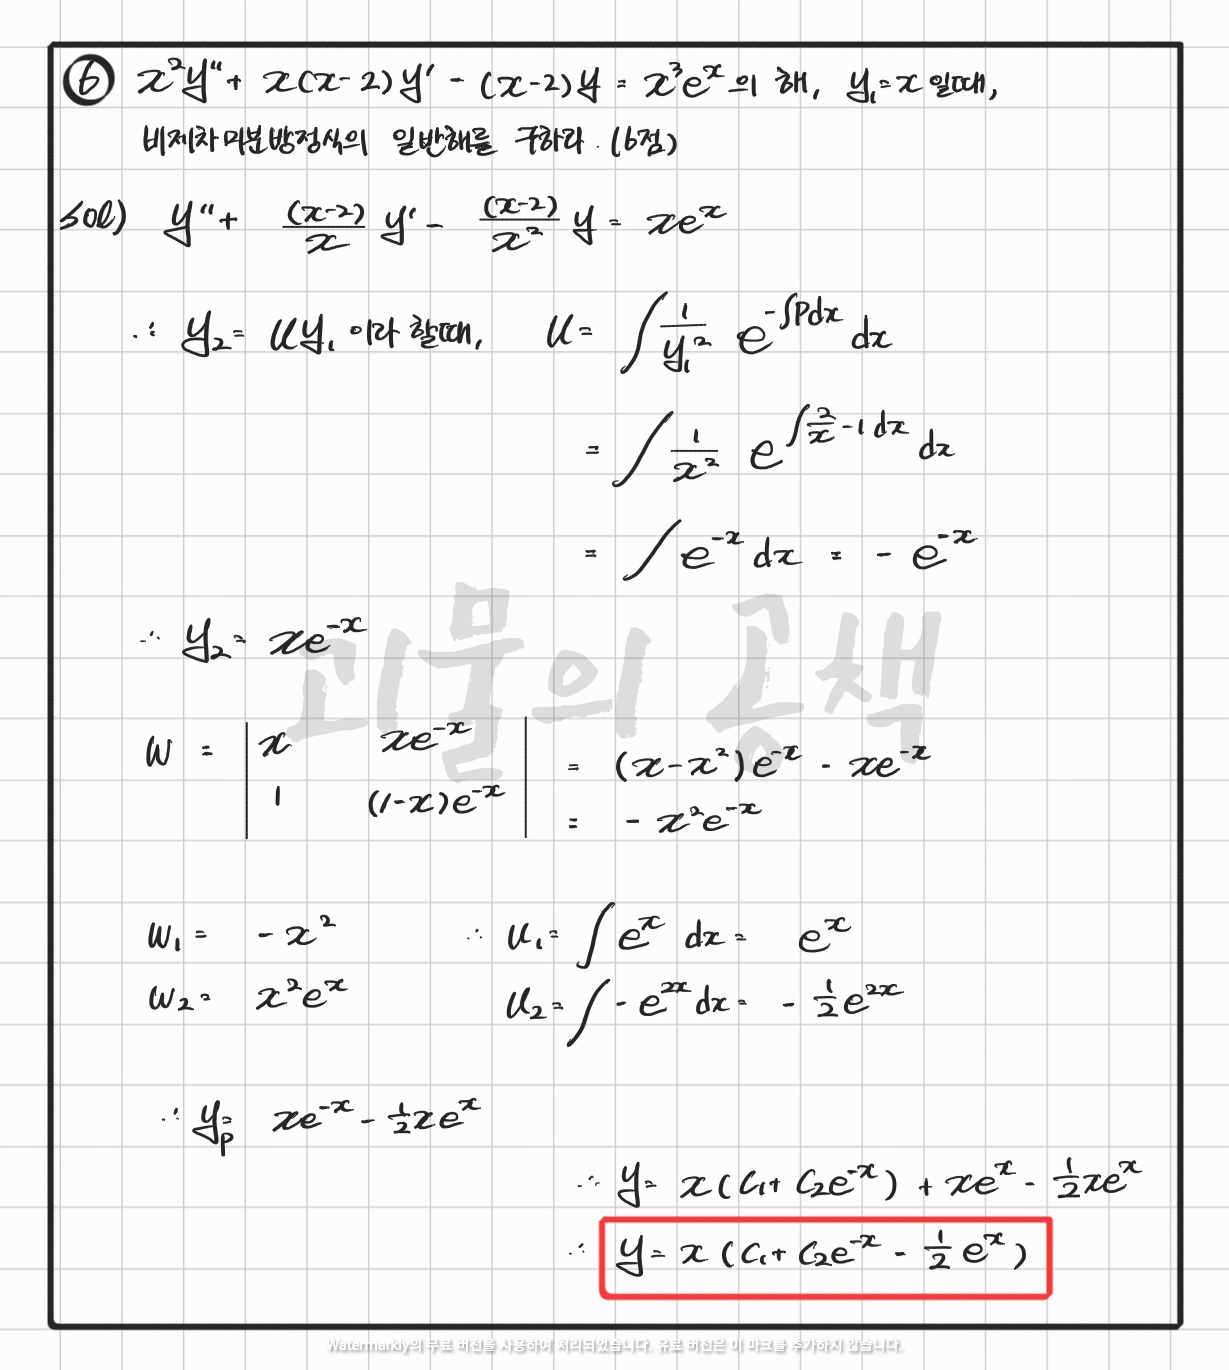 ⑥ x²y″ + x(x-2)y′ - (x-2)y = x³eˣ의 해, y₁=x 일때,
비제차 미분방정식의 일반해를 구하라. (6점)
sol) y″ + (x-2)/x y′ - (x-2)/x² y = xeˣ
∴ y₂ = uy₁ 이라 할때, u = ∫ 1/y₁² e^(-∫Pdx) dx
= ∫ 1/x² e^(∫ 2/x - 1 dx) dx
= ∫ e^(-x) dx = - e^(-x)
∴ y₂ = xe^(-x)
괴물의 공책
W = | x xe^(-x) | = (x-x²)e^(-x) - xe^(-x)
| 1 (1-x)e^(-x) | = - x²e^(-x)
W₁ = - x² ∴ u₁ = ∫ eˣ dx = eˣ
W₂ = x²eˣ u₂ = ∫ - e^(2x) dx = - 1/2 e^(2x)
∴ yp = xe^(-x) - 1/2 xeˣ
∴ y = x (C₁ + C₂e^(-x)) + xeˣ - 1/2 xeˣ
∴ y = x (C₁ + C₂e^(-x) - 1/2 eˣ)
Watermarkly의 무료 버전을 사용하여 처리되었습니다. 유료 버전은 이 마크를 추가하지 않습니다.